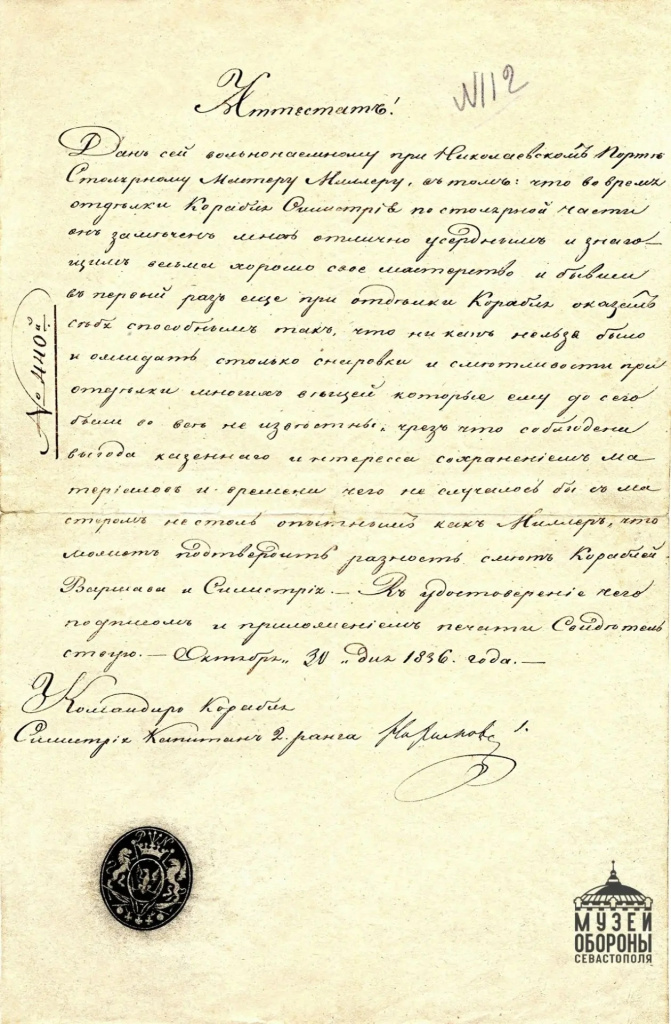 №112
Аттестатъ!
Данъ сей вольнонаемному при Николаевскомъ Портѣ
Столярному Мастеру Миллеру, въ томъ: что во время
отдѣлки Корабля Силистрія по столярной части
онъ замѣченъ мною отлично усерднымъ и знаю-
щимъ весьма хорошо свое мастерство и бывши
въ первый разъ еще при отдѣлки Корабля оказалъ
себя способнымъ такъ, что ни какъ нельзя было
и ожидать столько снаровки и смѣтливости при
отдѣлки многихъ вѣщей которые ему до сего
были во все не извѣстны, чрезъ что соблюдена
выгода казеннаго интересса сохраненіемъ ма
теріаловъ и времени чего не случалось бы съ ма
стеромъ не столь опытнымъ какъ Миллеръ, что
можетъ подтвердить разность смѣтъ Кораблей
Варшава и Силистрія. — Въ удостовереніе чего
подписомъ и приложеніемъ печати Свидѣтель
ствую. — Октября „30„ дня 1836. года. —
№ 440й.
Командиръ Корабля
Силистрія Капитанъ 2. ранга Нахимовъ 1.
МУЗЕЙ
ОБОРОНЫ
СЕВАСТОПОЛЯ